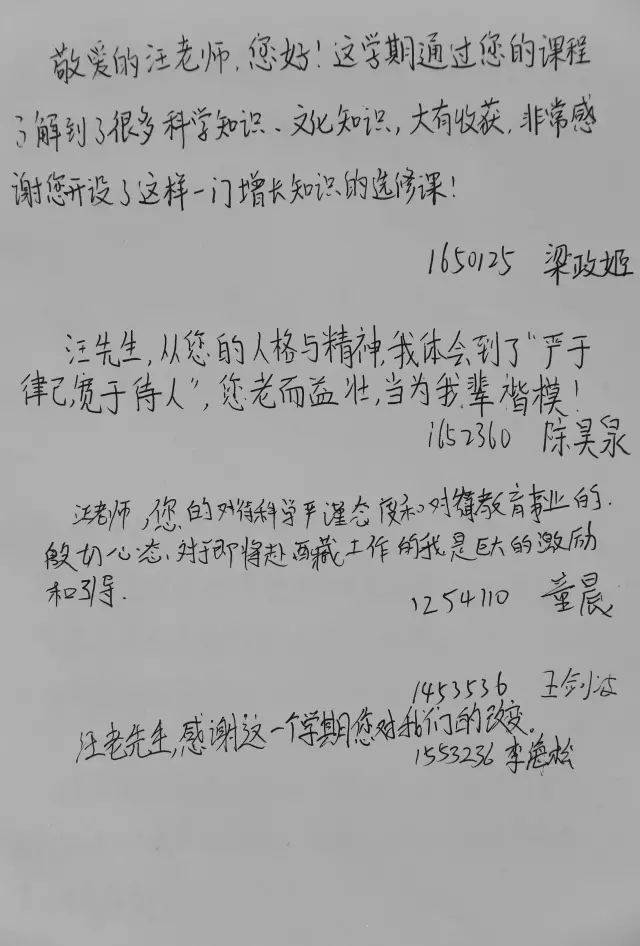 敬爱的汪老师,您好!这学期通过您的课程
了解到了很多科学知识、文化知识,大有收获,非常感
谢您开设了这样一门增长知识的选修课!
1650125 梁政姬
汪先生,从您的人格与精神,我体会到了“严于
律己,宽于待人”,您老而益壮,当为我辈楷模!
1652360 陈昊泉
汪老师,您的对待科学严谨态度和对待教育事业的
殷切心态,对于即将赴西藏工作的我是巨大的激励
和引导.
1254110 童晨
1453536 王剑波
汪老先生,感谢这一个学期您对我们的改变。
1553236 李海松